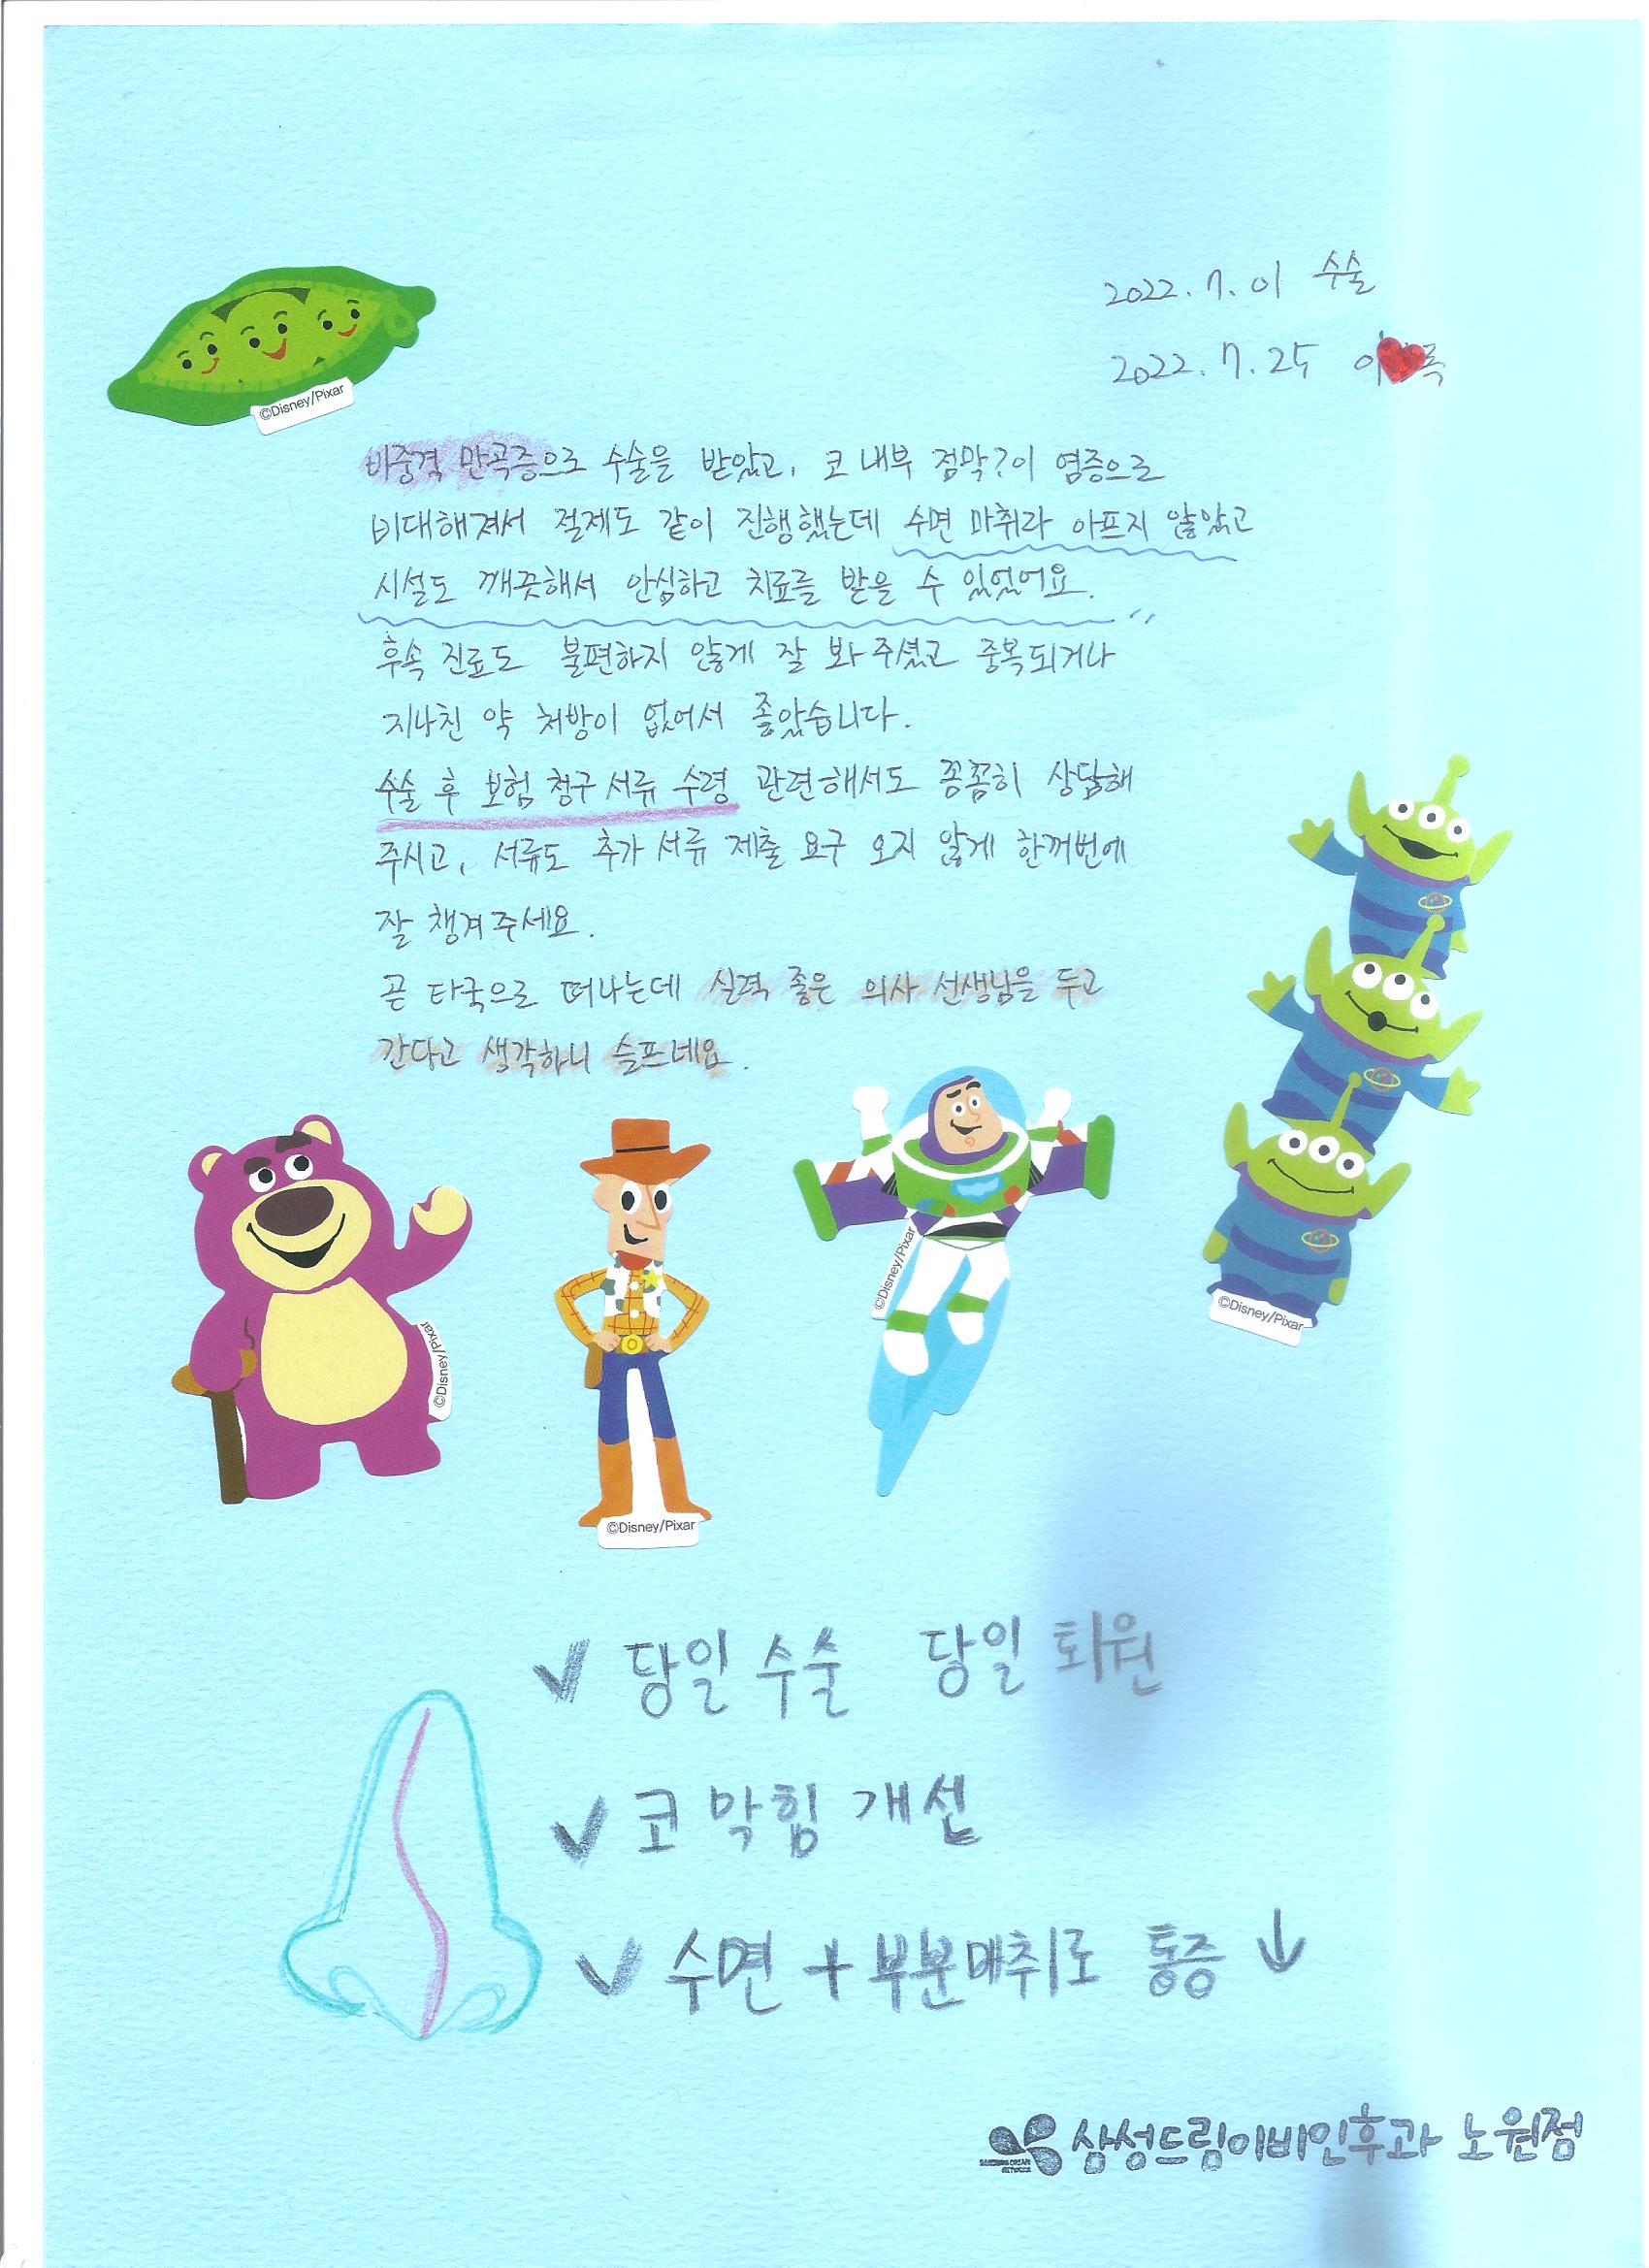 2022. 7. 01 수술
2022. 7. 25
©Disney/Pixar
비중격 만곡증으로 수술을 받았고, 코 내부 점막?이 염증으로
비대해져서 절제도 같이 진행했는데 수면 마취라 아프지 않았고
시설도 깨끗해서 안심하고 치료를 받을 수 있었어요.
후속 진료도 불편하지 않게 잘 봐 주셨고 중복되거나
지나친 약 처방이 없어서 좋았습니다.
수술 후 보험 청구 서류 수령 관련해서도 꼼꼼히 상담해
주시고, 서류도 추가 서류 제출 요구 오지 않게 한꺼번에
잘 챙겨주세요.
곧 타국으로 떠나는데 실력 좋은 의사 선생님을 두고
간다고 생각하니 슬프네요.
©Disney/Pixar
©Disney/Pixar
©Disney/Pixar
©Disney/Pixar
✓ 당일 수술 당일 퇴원
✓ 코 막힘 개선
✓ 수면 + 부분마취로 통증 ↓
삼성드림이비인후과 노원점